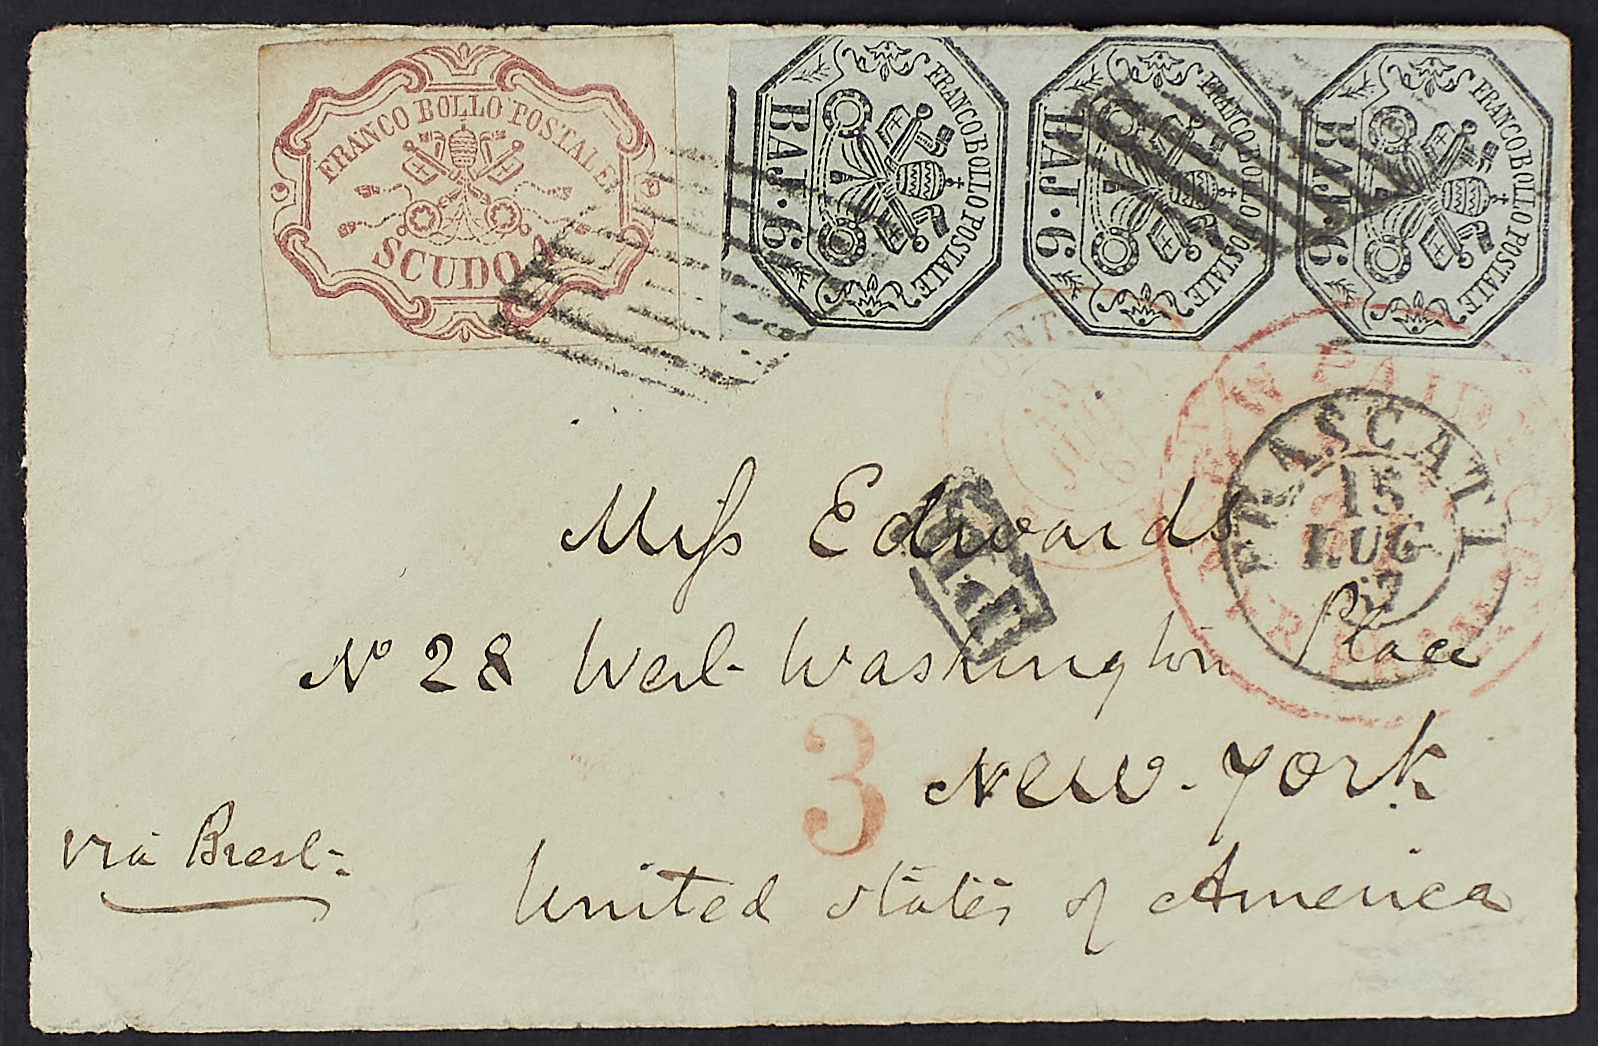 FRANCO BOLLO POSTALE
SCUDO
FRANCO BOLLO POSTALE
BAJ·6
FRANCO BOLLO POSTALE
BAJ·6
FRANCO BOLLO POSTALE
BAJ·6
PAID
FRASCATI
15
LUG
67
P.D.
Miss Edwards
No 28 West Washington Place
3
New-York
via Brest-
United States of America